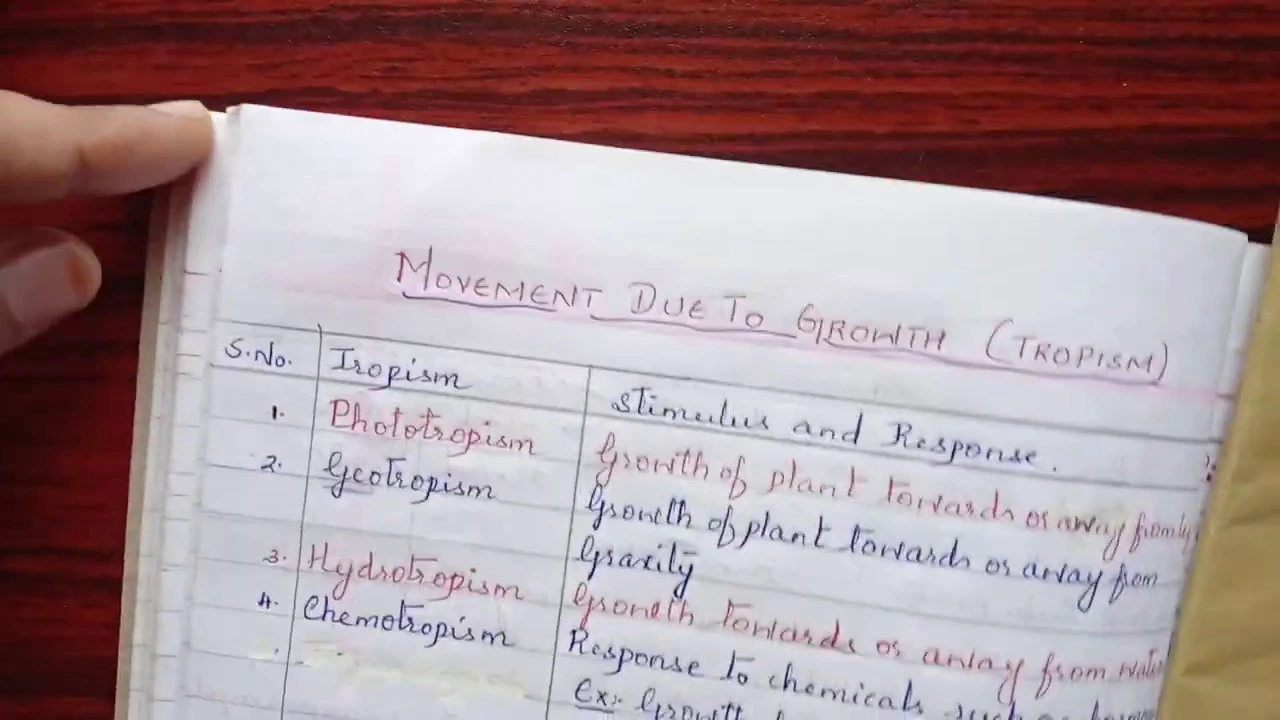 MOVEMENT DUE TO GROWTH (TROPISM)
S.No. Tropism Stimulus and Response.
1. Phototropism Growth of plant towards or away from
2. Geotropism Growth of plant towards or away from
Gravity
3. Hydrotropism Growth towards or away from water
4. Chemotropism Response to chemicals such as
Ex:- Growth